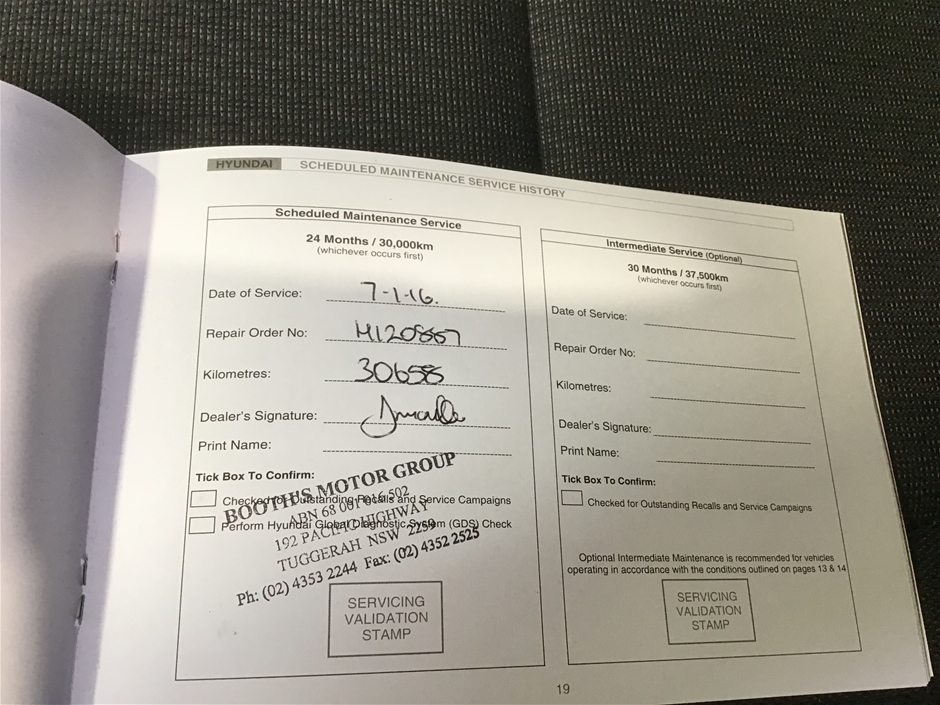 HYUNDAI SCHEDULED MAINTENANCE SERVICE HISTORY
Scheduled Maintenance Service
24 Months / 30,000km
(whichever occurs first)
Date of Service: 7-1-16.
Repair Order No: H120887
Kilometres: 30658
Dealer's Signature:
Print Name:
Tick Box To Confirm:
Checked for Outstanding Recalls and Service Campaigns
Perform Hyundai Global Diagnostic System (GDS) Check
BOOTH'S MOTOR GROUP
ABN 68 001 016 502
192 PACIFIC HIGHWAY
TUGGERAH NSW 2259
Ph: (02) 4353 2244 Fax: (02) 4352 2525
SERVICING
VALIDATION
STAMP
Intermediate Service (Optional)
30 Months / 37,500km
(whichever occurs first)
Date of Service:
Repair Order No:
Kilometres:
Dealer's Signature:
Print Name:
Tick Box To Confirm:
Checked for Outstanding Recalls and Service Campaigns
Optional Intermediate Maintenance is recommended for vehicles
operating in accordance with the conditions outlined on pages 13 & 14
SERVICING
VALIDATION
STAMP
19